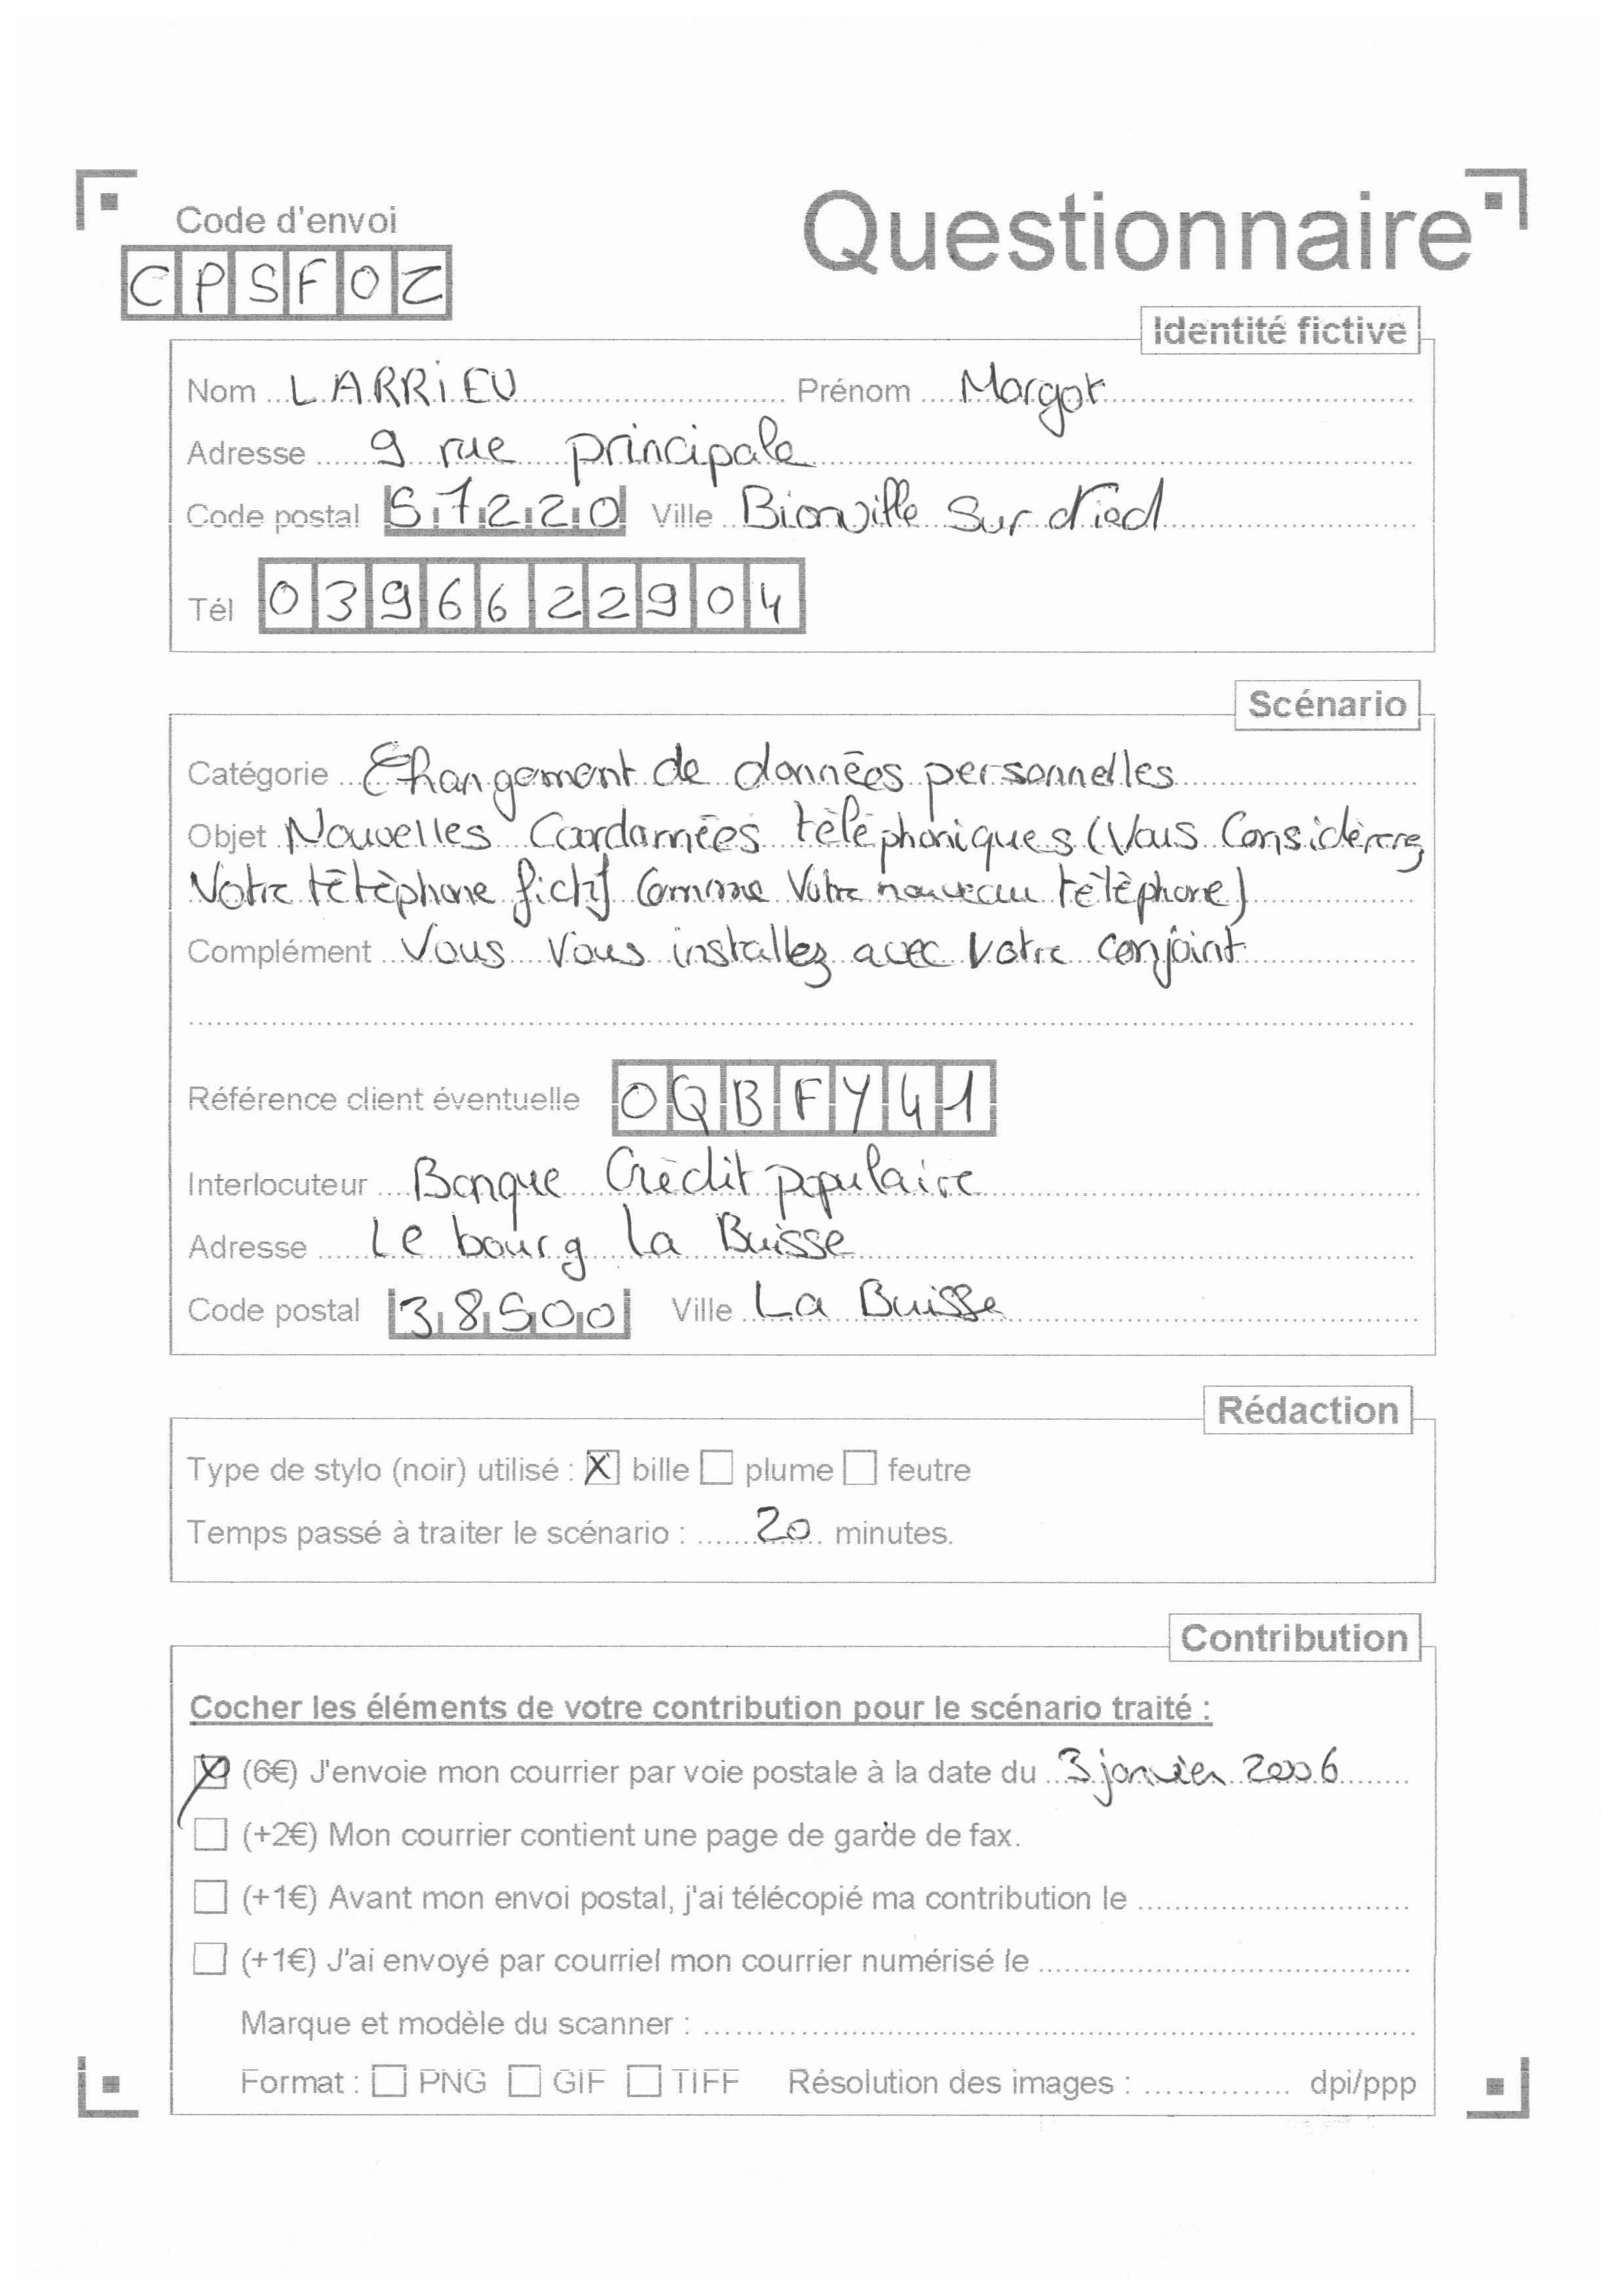 Code d'envoi
Questionnaire
CPSFOZ
Identité fictive
Nom LARRIEU Prénom Margot
Adresse 9 rue principale
Code postal 57220 Ville Bionville Sur Nied
Tél 0396622904
Scénario
Catégorie Changement de données personnelles
Objet Nouvelles Coordonnées téléphoniques (Vous Considérerez
Votre téléphone fictif Comme Votre nouveau téléphone)
Complément Vous Vous installez avec Votre conjoint
Référence client éventuelle OQBFY41
Interlocuteur Banque Crédit populaire
Adresse Le bourg La Buisse
Code postal 38500 Ville La Buisse
Rédaction
Type de stylo (noir) utilisé : X bille plume feutre
Temps passé à traiter le scénario : 20 minutes.
Contribution
Cocher les éléments de votre contribution pour le scénario traité :
X (6€) J'envoie mon courrier par voie postale à la date du 3 janvier 2006
(+2€) Mon courrier contient une page de garde de fax.
(+1€) Avant mon envoi postal, j'ai télécopié ma contribution le
(+1€) J'ai envoyé par courriel mon courrier numérisé le
Marque et modèle du scanner :
Format : PNG GIF TIFF Résolution des images : dpi/ppp